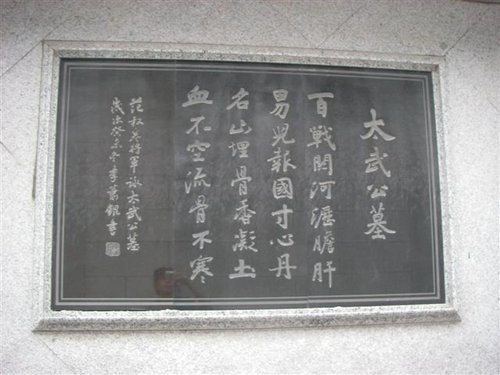 太武公墓
百戰關河瀝膽肝
男兒報國寸心丹
名山埋骨香凝土
血不空流骨不寒
范叔將軍詠太武公墓
歲次癸未冬李書